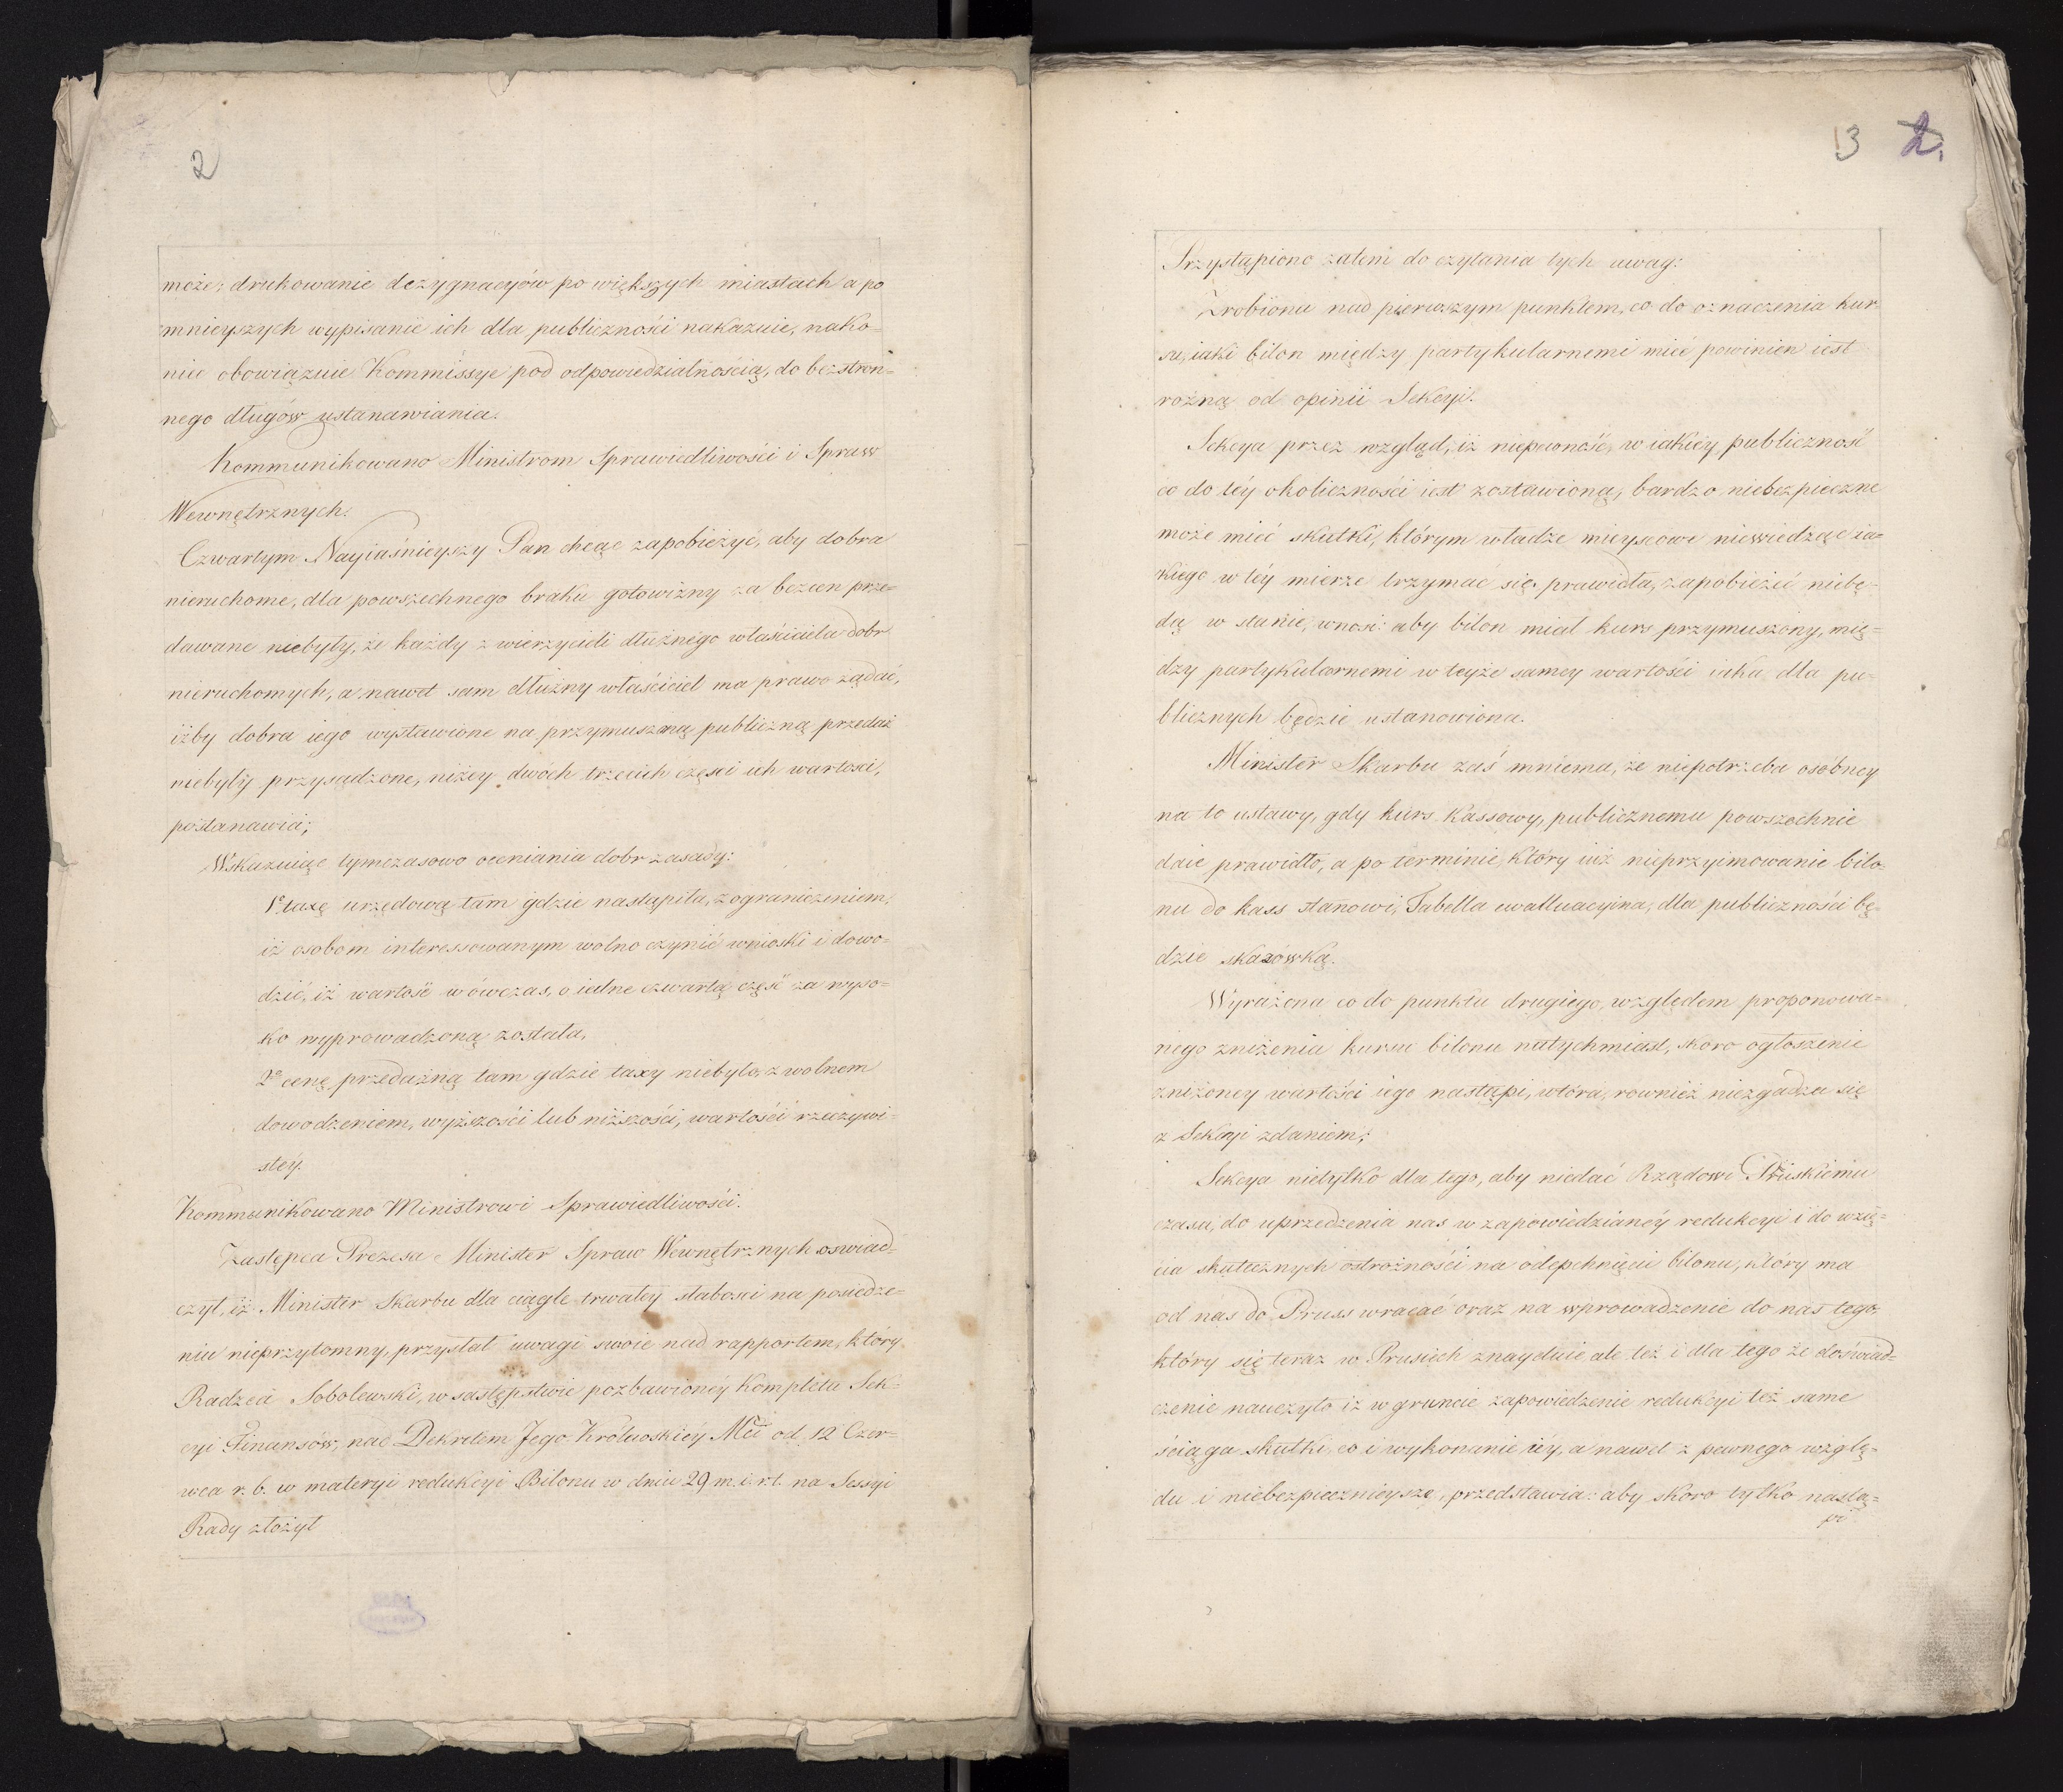 2
może; drukowanie dezygnacyów po większych miastach a po
mnieyszych wypisanie ich dla publiczności nakazuie, nako-
niec obowiązuie Kommissye pod odpowiedzialnością, do bezstron-
nego długów ustanawiania.
Kommunikowano Ministrom Sprawiedliwości i Spraw
Wewnętrznych.
Czwartym Nayiaśnieyszy Pan chcąc zapobieżyć, aby dobra
nieruchome, dla powszechnego braku gotowizny za bezcen prze-
dawane niebyły, że każdy z wierzycieli dłużnego właściciela dobr
nieruchomych, a nawet sam dłużny właściciel ma prawo żądać,
iżby dobra iego wystawione na przymuszoną publiczną przedaż
niebyły przysądzone, niżey dwóch trzecich części ich wartości,
postanawia;
Wskazuiąc tymczasowo oceniania dobr zasady:
1º taxę urzędową tam gdzie nastąpiła, z ograniczeniem,
iż osobom interessowanym wolno czynić wnioski i dowo-
dzić, iż wartość wowczas, o iedne czwartą część za wyso-
ko wyprowadzoną została,
2º cenę przedażną tam gdzie taxy niebyło, z wolnem
dowodzeniem, wyższości lub niższości, wartości rzeczywi-
stéy.
Kommunikowano Ministrowi Sprawiedliwości.
Zastępca Prezesa Minister Spraw Wewnętrznych oswiad-
czył, iż Minister Skarbu dla ciągle trwałey słabosci na posiedze-
niu nieprzytomny, przysłał uwagi swoie nad rapportem, który
Radzca Sobolewski, w zastępstwie pozbawionéy Kompletu Sek-
cyi Finansów, nad Dekretem Jego Królewskiéy Mci od 12 Czer-
wca r. b. w materyi redukcyi Bilonu w dniu 29 m. i. r. t. na Sessyi
Rady złożył
3 2.
Przystąpiono zatem do czytania tych uwag:
Zrobiona nad pierwszym punktem, co do oznaczenia kur-
su, iaki bilon między partykularnemi mieć powinien iest
rożną od opinii Sekcyi.
Sekcya przez wzgląd, iż niepewność, w iakiéy publiczność
co do téy okoliczności iest zostawioną, bardzo niebezpieczne
może mieć skutki, którym władze mieyscowe niewiedząc ia-
kiego w téy mierze trzymać się prawidła, zapobieżeć niebę-
dą w stanie, wnosi: aby bilon miał kurs przymuszony, mię-
dzy partykularnemi w teyże samey wartości iaka dla pu-
blicznych będzie ustanowiona.
Minister Skarbu zaś mniema, że niepotrzeba osobney
na to ustawy, gdy kurs Kassowy, publicznemu powszechnie
daie prawidło, a po terminie, który iuż nieprzyimowanie bilo-
nu do kass stanowi, Tabella ewalluacyina, dla publiczności bę-
dzie skazówką.
Wyrażona co do punktu drugiego, względem proponowa-
nego zniżenia kursu bilonu natychmiast, skoro ogłoszenie
zniżoney wartości iego nastąpi, wtóra, rownież niezgadza się
z Sekcyi zdaniem;
Sekcya nietylko dla tego, aby niedać Rządowi Pruskiemu
czasu, do uprzedzenia nas w zapowiedzianéy redukcyi i do wzię-
cia skutecznych ostrożności na odepchnięcie bilonu, który ma
od nas do Pruss wracać oraz na wprowadzenie do nas tego,
który się teraz w Prusiech znayduie ale też i dla tego że doświad-
czenie nauczyło iż w gruncie zapowiedzenie redukcyi też same
ściąga skutki, co i wykonanie iéy, a nawet z pewnego wzglę-
du i niebezpiecznieysze, przedstawia: aby skoro tylko nastą-
pi